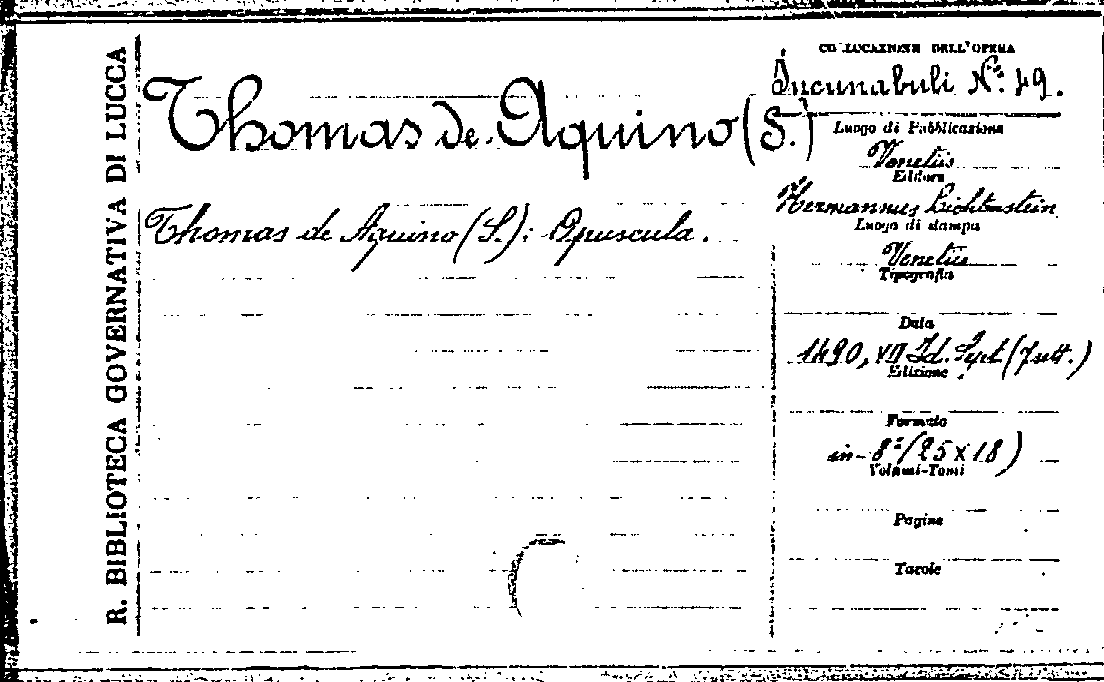 R. BIBLIOTECA GOVERNATIVA DI LUCCA
Thomas de Aquino (S.)
Thomas de Aquino (S.): Opuscula.
COLLOCAZIONE DELL'OPERA
Incunabuli N.º 49.
Luogo di Pubblicazione
Venetiis
Editore
Hermannus Lichtenstein
Luogo di stampa
Venetiis
Tipografia
Data
1490, VII Id. Sept. (7 sett.)
Edizione
Formato
in-8º (25 x 18)
Volumi-Tomi
Pagine
Tavole